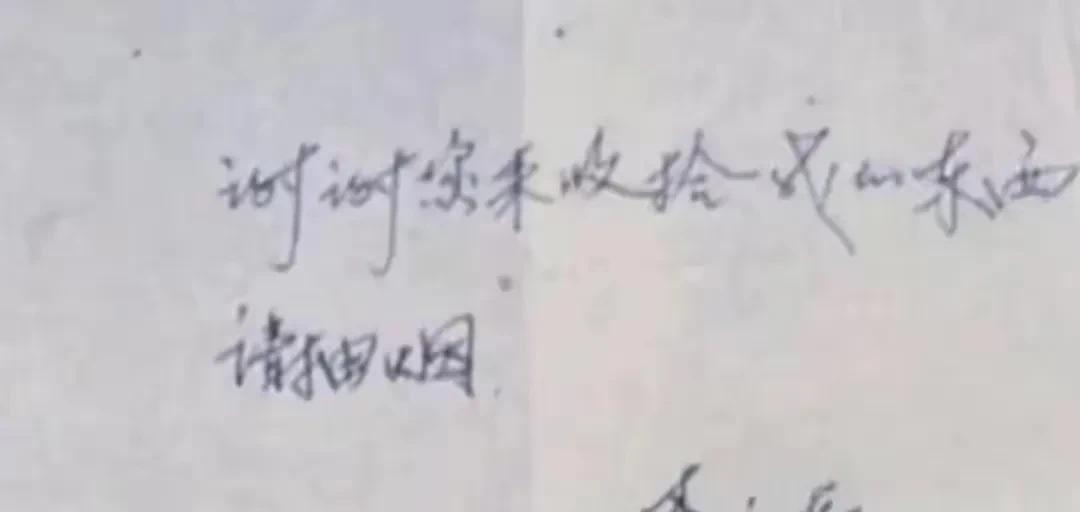 谢谢您来收拾我的东西
请抽烟.